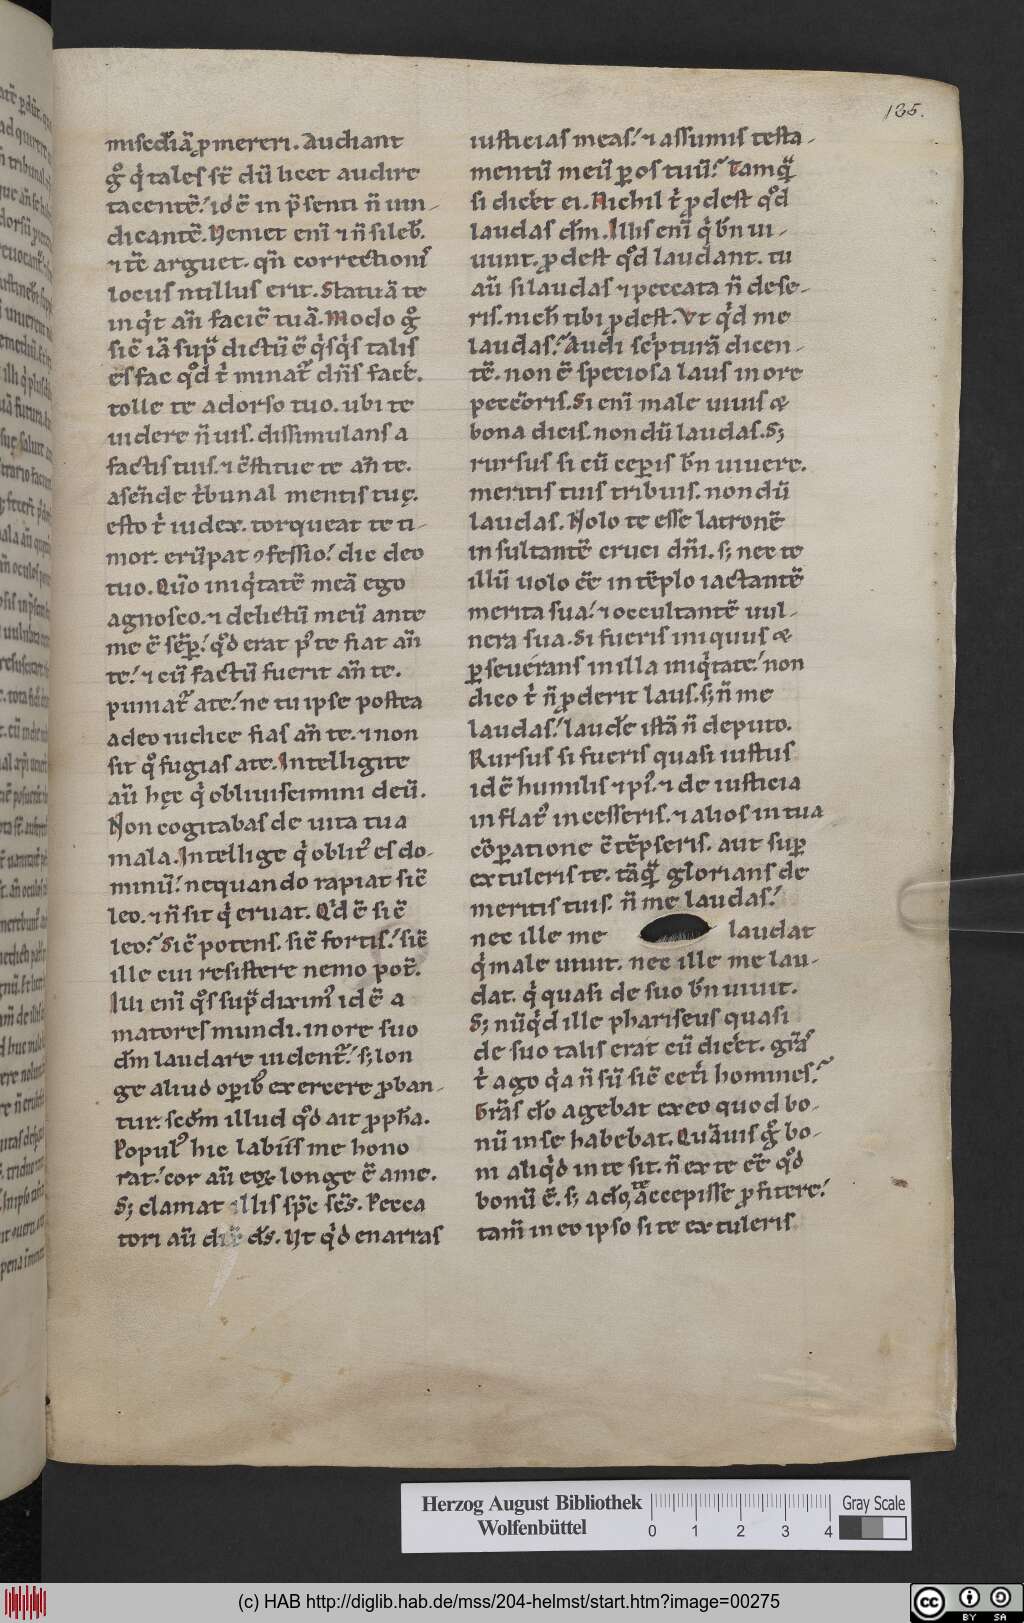 135.
misc̄diā ꝓmereri. Audiant
gͦ qͥ tales st̄ dū licet audire
tacentē. id ē in p̄senti n̄ uin-
dicantē. Veniet eni᷑ ⁊ n̄ sileb̄.
⁊ tē arguet. qn̄ correctioni᷑
locus nullus erit. Statuā te
inqͥt an̄ faciē tuā. Modo gͦ
sic̄ iā sup̄ dictū ē qͥsqͥs talis
es fac qͦd tͥ minat᷑ dn̄s facē.
tolle te adorso tuo. ubi te
uidere n̄ uis. dissimulans a
factis tuis. ⁊ c̄stitue te an̄ te.
ascende tͥbunal mentis tuę.
esto tͥ iudex. torqueat te ti-
mor. erūpat ꝯfessio. dic deo
tuo. Qm̄ iniqͥtatē meā ego
agnosco. ⁊ delictū meū ante
me ē sēꝑ. qͦd erat p᷒ te fiat an̄
te. ⁊ cū factū fuerit an̄ te.
puniat᷑ ate. ne tu ipse postea
adeo iudice fias an̄ te. ⁊ non
sit qͦ fugias ate. Intelligite
aū hęc qͥ obliuiscimini deū.
Non cogitabas de uita tua
mala. Intellige qͥ oblit᷒ es do-
minū. nequando rapiat sic̄
leo. ⁊ n̄ sit qͥ eruat. Qͥd ē sic̄
leo. Sic̄ potens. sic̄ fortis. sic̄
ille cui resistere nemo pot̄.
Illi eni᷑ qͦs sup̄ diximᷣ id ē a
matores mundi. in ore suo
dm̄ laudare uident᷑. s; lon
ge aliud oꝑib᷒ exercere ꝓban-
tur. scd̄m illud qͦd ait ꝓph̄a.
Popul᷒ hic labiis me hono
rat. cor aū eoꝝ longe ē ame.
S; clamat illis sp̄c sc̄s. Pecca
tori aū dix̄ ds̄. Vt qͥd enarras
iusticias meas. ⁊ assumis testa-
mentū meū ꝑ os tuū. Tamqͣ
si dicēt ei. Nichil tͥ ꝓdest qͦd
laudas dm̄. Illis eni᷑ qͥ bn̄ ui-
uunt. ꝓdest qͦd laudant. tu
aū si laudas ⁊ peccata n̄ dese-
ris. nich̄ tibi ꝓdest. Vt qͥd me
laudas. Audi scͥpturā dicen-
tē. non ē speciosa laus in ore
peccōris. Si eni᷑ male uiuis &
bona dicis. non dū laudas. S;
rursus si cū ceꝑis bn̄ uiuere.
meritis tuis tribuis. non dū
laudas. Nolo te esse latronē
insultantē cruci dn̄i. s; nec te
illū uolo eē in tēplo iactantē
merita sua. ⁊ occultantē uul-
nera sua. Si fueris iniquus &
ꝑseuerans in illa iniqͥtate. non
dico tͥ n̄ ꝓderit laus. s; n̄ me
laudas. laudē istā n̄ deputo.
Rursus si fueris quasi iustus
id ē humilis ⁊ pi᷒. ⁊ de iusticia
inflat᷒ incesseris. ⁊ alios in tua
cōꝑatione c̄tēpseris. aut suꝑ
extuleris te. tāqͣ glorians de
meritis tuis. n̄ me laudas.
nec ille me laudat
qͥ male uiuit. nec ille me lau-
dat. qͥ quasi de suo bn̄ uiuit.
S; nūqͥd ille phariseus quasi
de suo talis erat cū dicēt. grā᷒
tͥ ago qͥa n̄ sū sic̄ cetͥi homines.
Grā᷒ do agebat ex eo quod bo-
nū in se habebat. Quāuis gͦ bo-
ni aliqͥd in te sit. n̄ ex te eē qͦd
bonū ē. s; a do, te accepisse ꝓfitere.
tam̄ in eo ipso si te extuleris
Herzog August Bibliothek
Wolfenbüttel
0 1 2 3 4
Gray Scale
(c) HAB http://diglib.hab.de/mss/204-helmst/start.htm?image=00275
cc BY SA